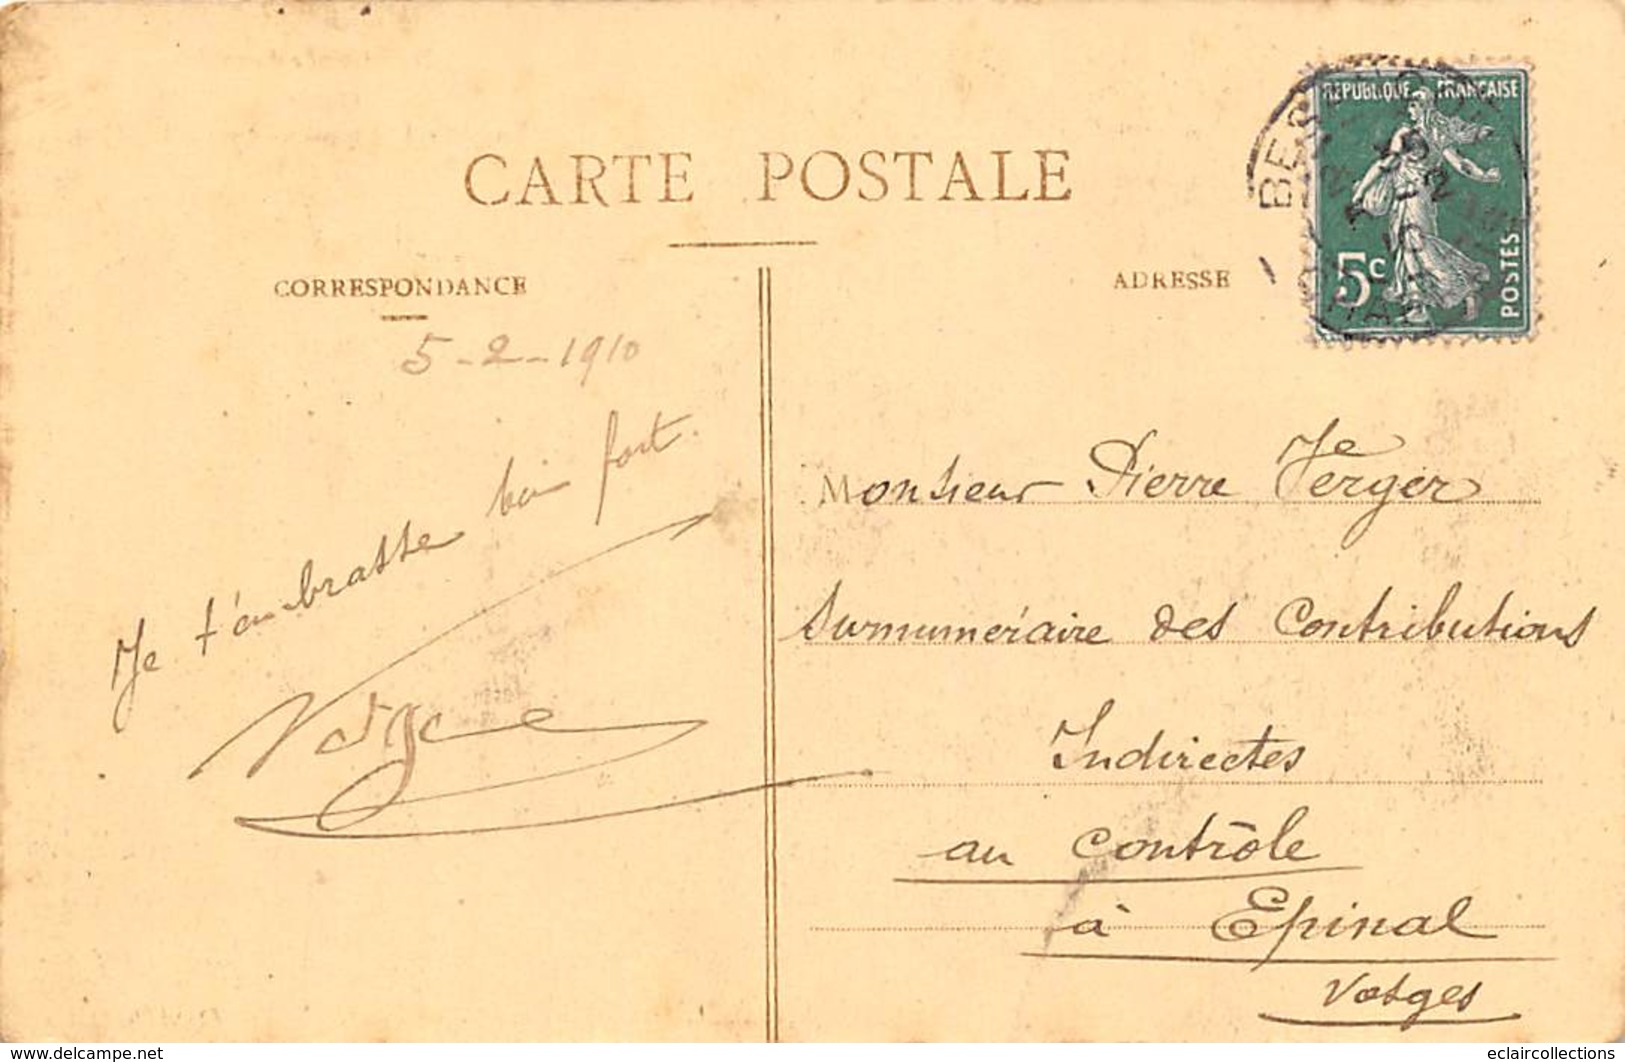 CARTE POSTALE
CORRESPONDANCE
5-2-1910
Je t'embrasse bien fort.
ADRESSE
REPUBLIQUE FRANÇAISE
5c
POSTES
Monsieur Pierre Jerger
Surnuméraire des Contributions
Indirectes
au Contrôle
à Epinal
Vosges
www.delcampe.net
eclaircollections